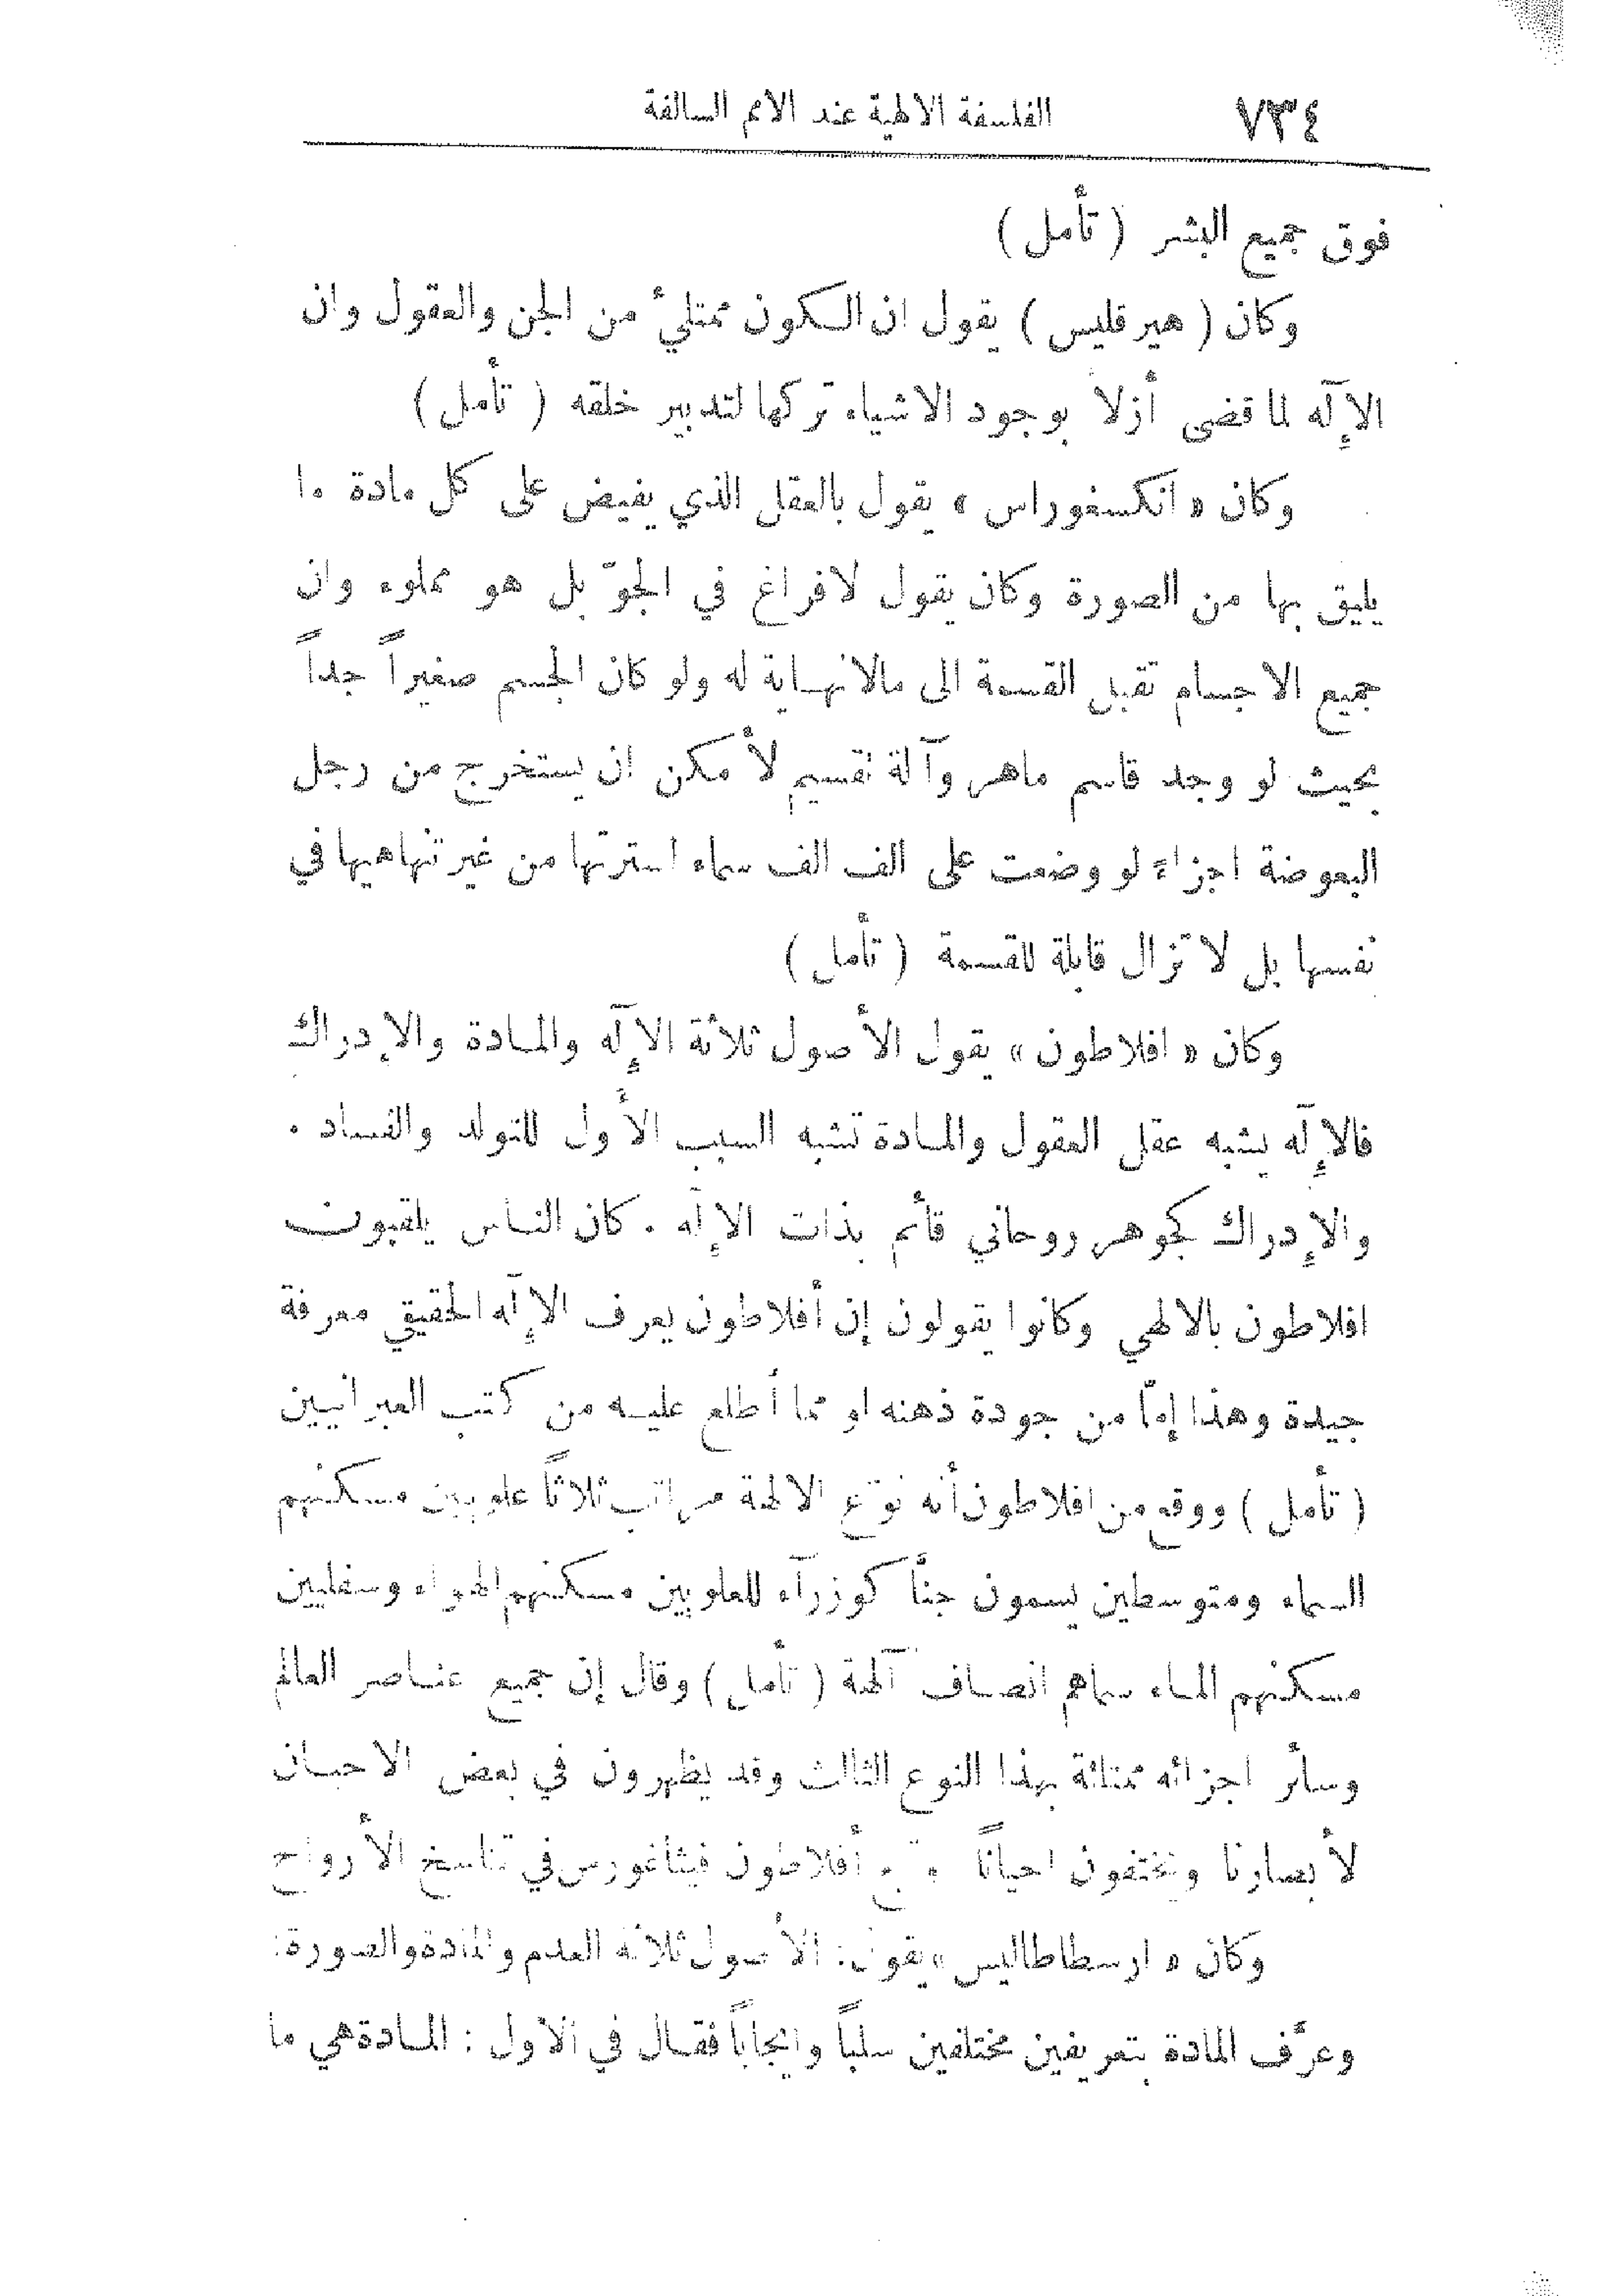 ٧٣٤ الفلسفة الالهية عند الامم السالفة
فوق جميع البشر ( تأمل )
وكان ( هيرقليس ) يقول ان الكون ممتليٌ من الجن والعقول وان
الإآله لما قضى أزلا بوجود الاشياء تركها لتدبير خلقه ( تأمل )
وكان « انكسغوراس » يقول بالعقل الذي يفيض على كل مادة ما
يليق بها من الصورة وكان يقول لافراغ في الجوّ بل هو مملوء وان
جميع الاجسام تقبل القسمة الى مالانهاية له ولو كان الجسم صغيراً جداً
بحيث لو وجد قاسم ماهر وآلة تقسيم لأمكن ان يستخرج من رجل
البعوضة اجزاءً لو وضعت على الف الف سماء لسترتها من غير تناهيها في
نفسها بل لا تزال قابلة للقسمة ( تأمل )
وكان « افلاطون » يقول الأصول ثلاثة الإآله والمادة والإدراك
فالإآله يشبه عقل العقول والمادة تشبه السبب الأول للتولد والفساد .
والإدراك كجوهر روحاني قائم بذات الإآله . كان الناس يلقبون
افلاطون بالالهي وكانوا يقولون إن أفلاطون يعرف الإآله الحقيقي معرفة
جيدة وهذا إمّا من جودة ذهنه او مما أطلع عليه من كتب العبرانيين
( تأمل ) ووقع من افلاطون أنه نوّع الالهة مراتب ثلاثاً علويين مسكنهم
السماء ومتوسطين يسمون جناً كوزرآء للعلويين مسكنهم الهواء وسفليين
مسكنهم الماء سماهم انصاف آلهة ( تأمل ) وقال إن جميع عناصر العالم
وسائر اجزائه ممتلئة بهذا النوع الثالث وقد يظهرون في بعض الاحيان
لأبصارنا ويختفون احياناً وتبع أفلاطون فيثاغورس في تناسخ الأرواح
وكان « ارسطاطاليس » يقول : الأصول ثلاثة العدم والمادة والصورة :
وعرَّف المادة بتعريفين مختلفين سلباً وايجاباً فقال في الأول : المادة هي ما